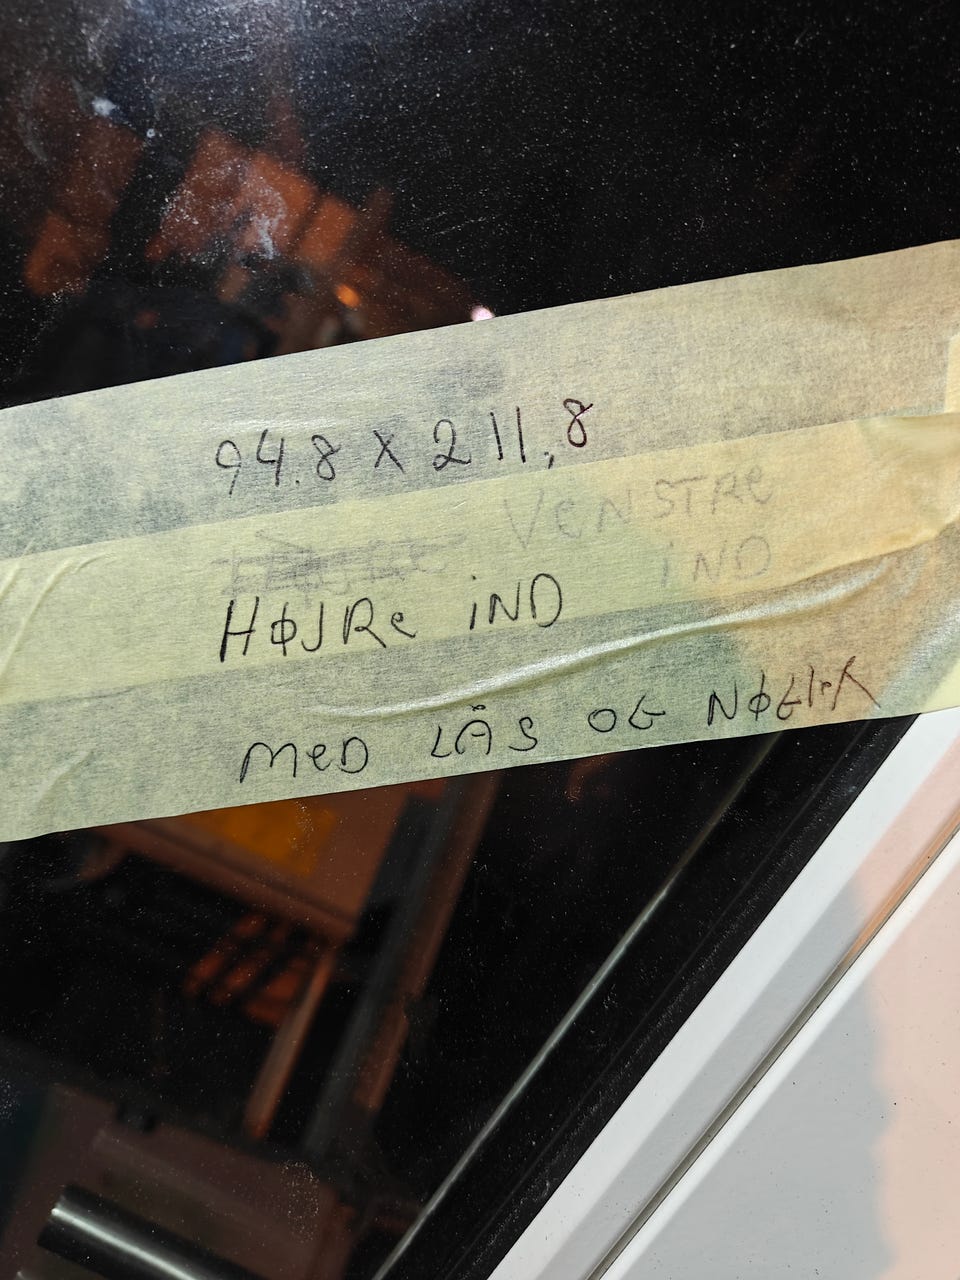 94.8 X 211,8
VENSTRE
iND
HØJRE iND
MED LÅS OG NØGLER